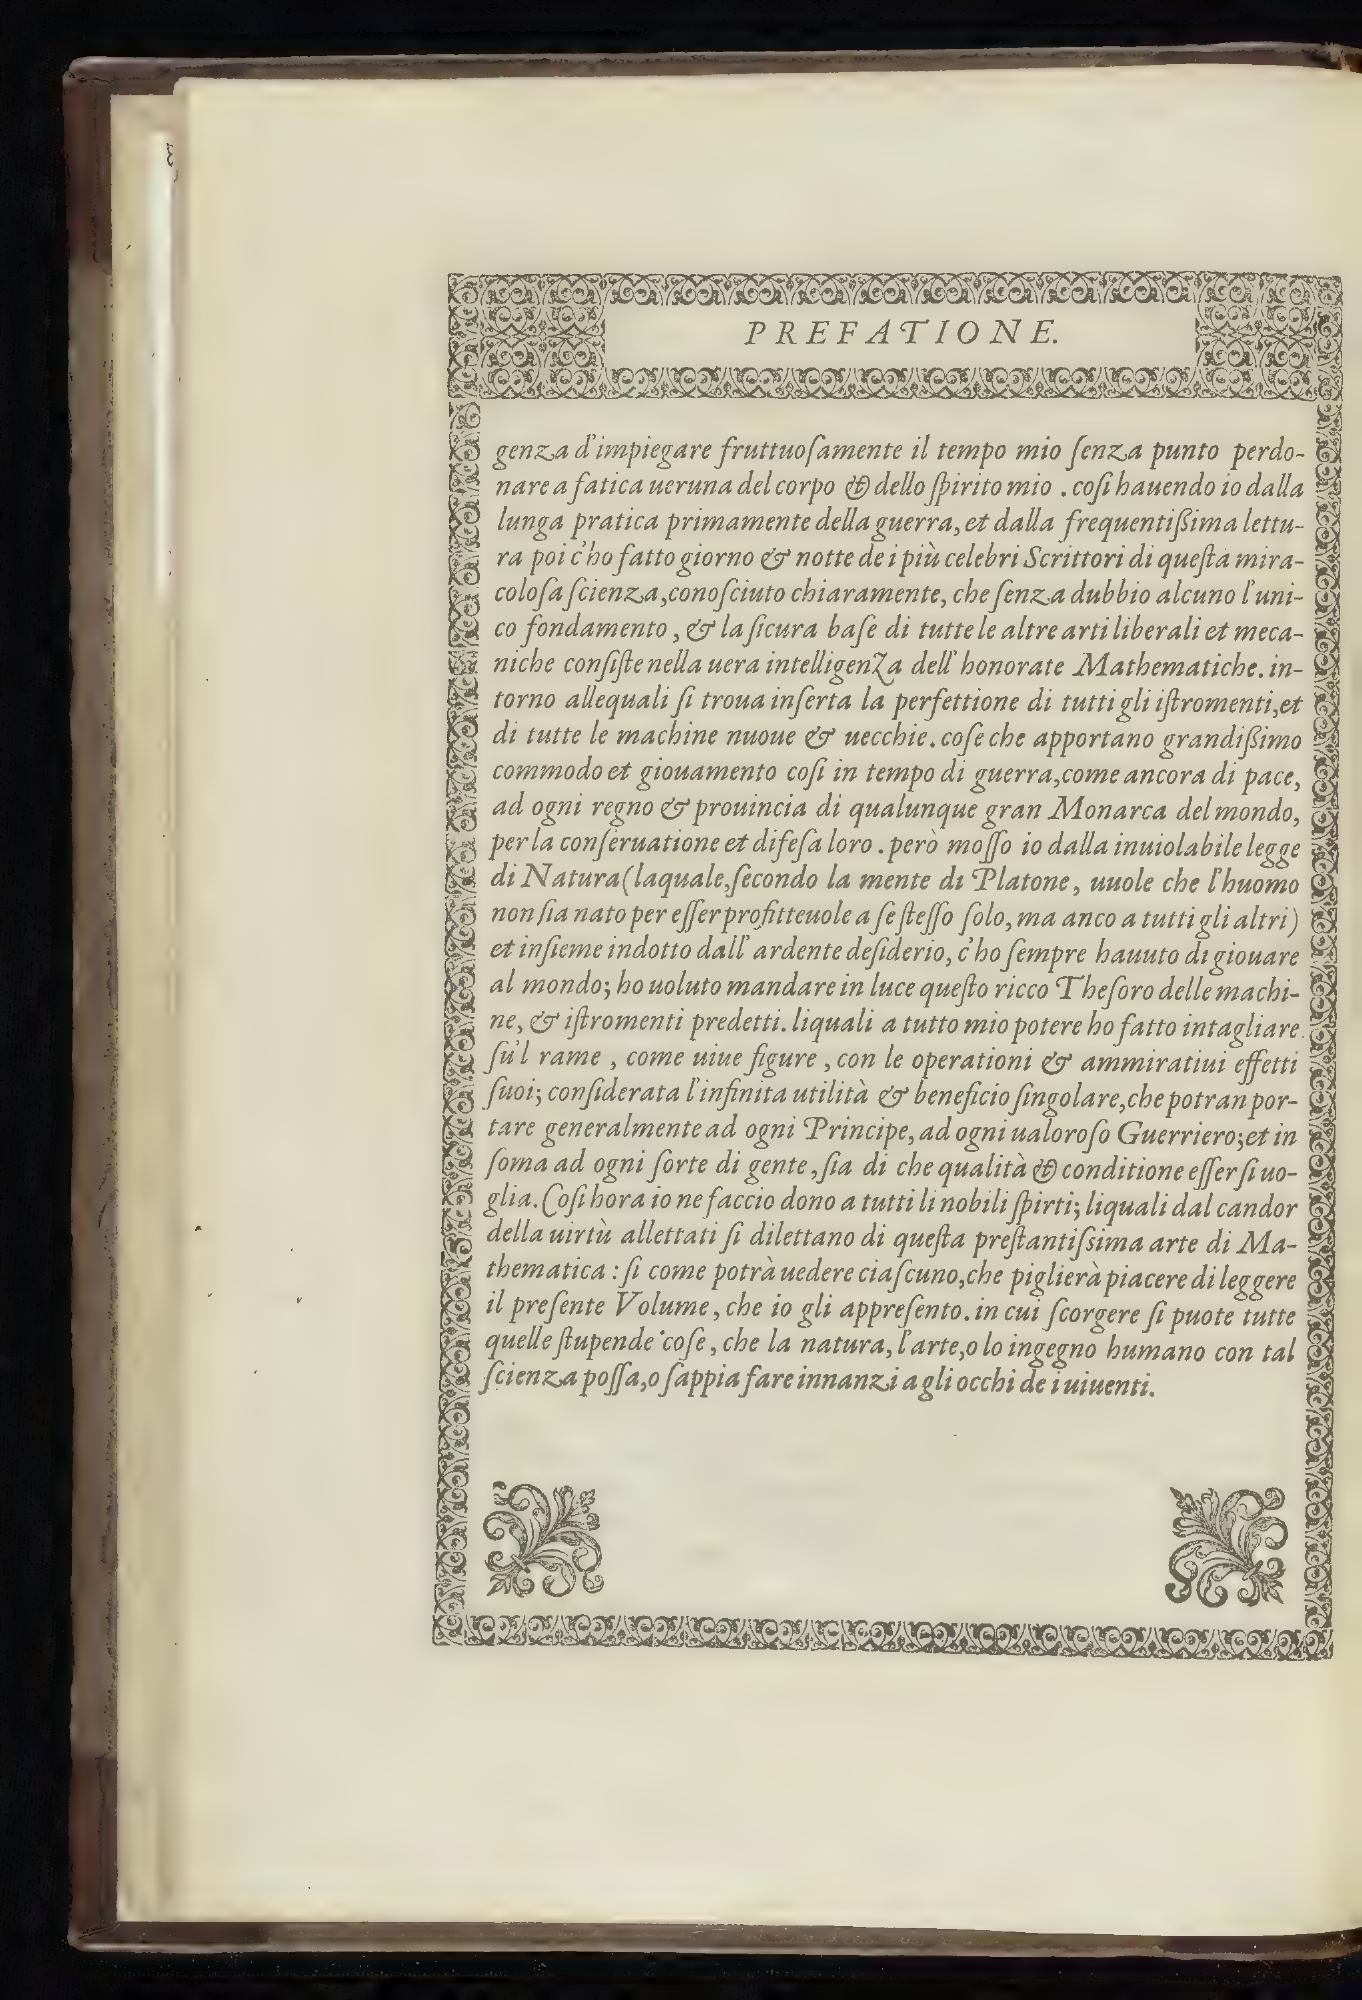 PREFATIONE.
genza d'impiegare fruttuoſamente il tempo mio ſenza punto perdo-
nare a fatica ueruna del corpo & dello ſpirito mio . coſi hauendo io dalla
lunga pratica primamente della guerra, et dalla frequentiſsima lettu-
ra poi c'ho fatto giorno & notte de i più celebri Scrittori di queſta mira-
coloſa ſcienza, conoſciuto chiaramente, che ſenza dubbio alcuno l'uni-
co fondamento , & la ſicura baſe di tutte le altre arti liberali et meca-
niche conſiſte nella uera intelligenza dell' honorate Mathematiche. in-
torno allequali ſi troua inſerta la perfettione di tutti gli iſtromenti, et
di tutte le machine nuoue & uecchie. coſe che apportano grandiſsimo
commodo et giouamento coſi in tempo di guerra, come ancora di pace,
ad ogni regno & prouincia di qualunque gran Monarca del mondo,
per la conſeruatione et difeſa loro . però moſſo io dalla inuiolabile legge
di Natura (laquale, ſecondo la mente di Platone, uuole che l'huomo
non ſia nato per eſſer profitteuole a ſe ſteſſo ſolo, ma anco a tutti gli altri)
et inſieme indotto dall' ardente deſiderio, c'ho ſempre hauuto di giouare
al mondo; ho uoluto mandare in luce queſto ricco Theſoro delle machi-
ne, & iſtromenti predetti. liquali a tutto mio potere ho fatto intagliare
ſu'l rame , come uiue figure , con le operationi & ammiratiui effetti
ſuoi; conſiderata l'infinita utilità & beneficio ſingolare, che potran por-
tare generalmente ad ogni Principe, ad ogni ualoroſo Guerriero; et in
ſoma ad ogni ſorte di gente, ſia di che qualità & conditione eſſer ſi uo-
glia. Coſi hora io ne faccio dono a tutti li nobili ſpirti; liquali dal candor
della uirtù allettati ſi dilettano di queſta preſtantiſsima arte di Ma-
thematica : ſi come potrà uedere ciaſcuno, che piglierà piacere di leggere
il preſente Volume, che io gli appreſento. in cui ſcorgere ſi puote tutte
quelle ſtupende coſe, che la natura, l'arte, o lo ingegno humano con tal
ſcienza poſſa, o ſappia fare innanzi a gli occhi de i uiuenti.